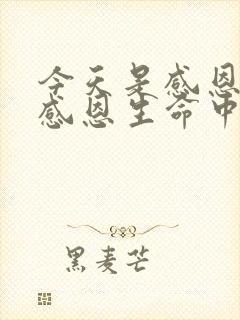 今天是感恩
感恩生命中
黑麦芒